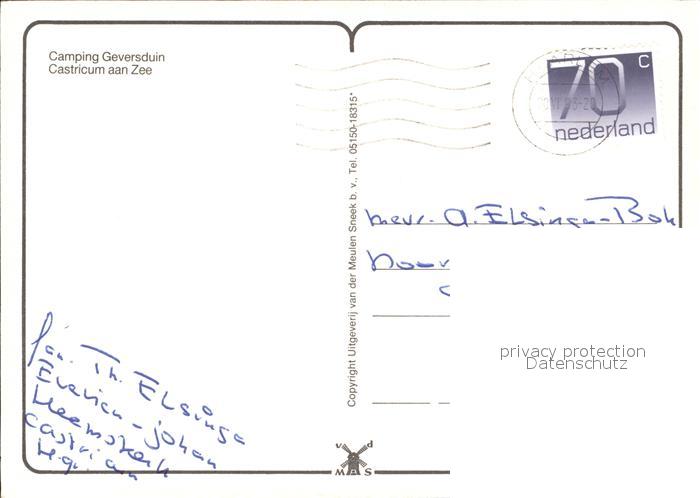 Camping Geversduin
Castricum aan Zee
70 c
nederland
Copyright Uitgeverij van der Meulen Sneek b. v., Tel. 05150-18315*
mevr. A. Elsinga-Bok
privacy protection
Datenschutz
fam. Th. Elsinga
Evelien-Johan
Heemskerk
v d
MAS